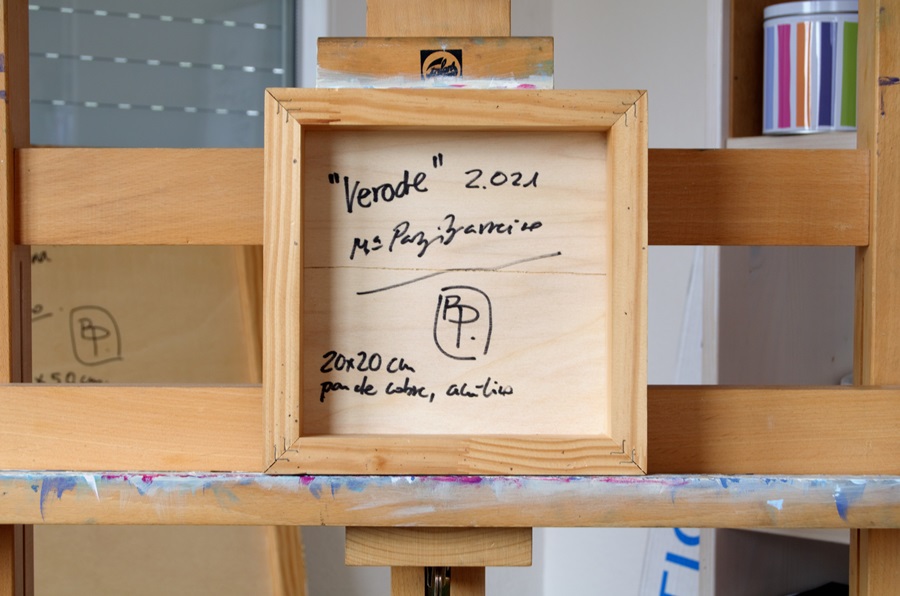 "Verode" 2.021
Mª Paz Barreiro
BP.
20x20 cm
pan de cobre, acrílico
BP.
x50 cm.
TIC